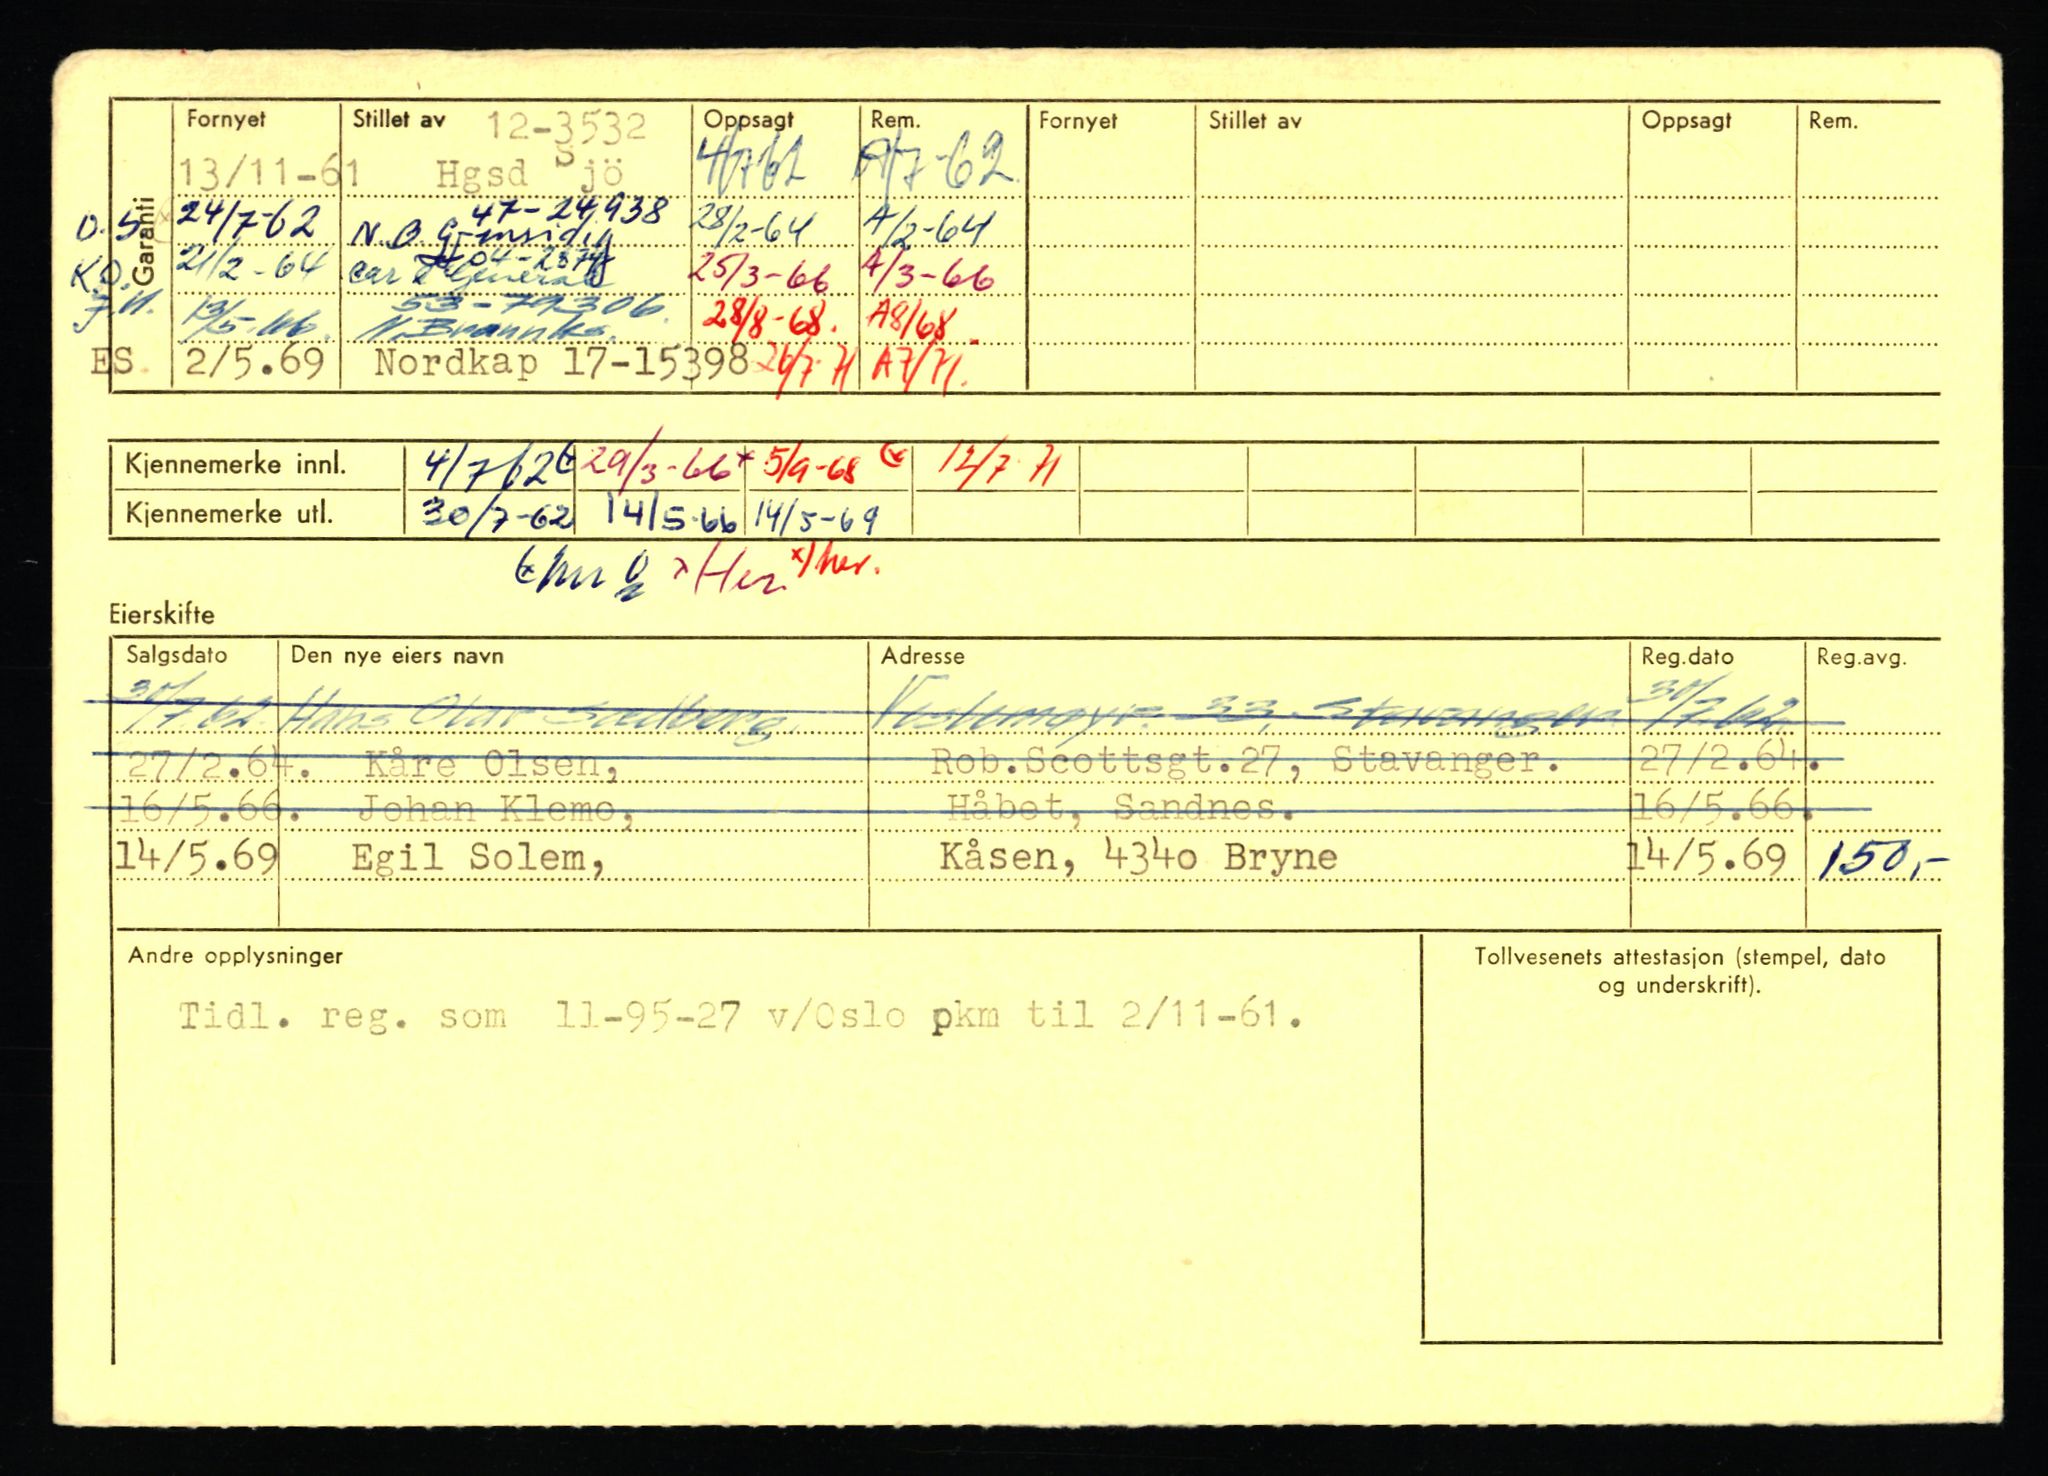 Garanti Fornyet Stillet av Oppsagt Rem. Fornyet Stillet av Oppsagt Rem.
12-3532
13/11-61 Hgsd Sjö 4/7 62 A/7-62
47-24938
O.S. 24/7-62 N.B. 28/2-64 A/2-64
K.O. 21/2-64 Car & General 25/3-66 A/3-66
53-79306.
13/5.66. 28/8-68. A8/68.
ES. 2/5.69 Nordkap 17-15398 26/7.71 A7/71.
Kjennemerke innl. 4/7 62 29/3-66 x 5/9-68 12/7 71
Kjennemerke utl. 30/7-62 14/5.66 14/5-69
x Her. x) her.
Eierskifte
Salgsdato Den nye eiers navn Adresse Reg.dato Reg.avg.
30/7.62. Hans Olav Sædberg. 33, Stavanger 30/7.62.
27/2.64. Kåre Olsen, Rob.Scottsgt.27, Stavanger. 27/2.64.
16/5.66. Johan Klemo, Håbet, Sandnes. 16/5.66.
14/5.69 Egil Solem, Kåsen, 4340 Bryne 14/5.69 150,-
Andre opplysninger
Tollvesenets attestasjon (stempel, dato
og underskrift).
Tidl. reg. som 11-95-27 v/Oslo pkm til 2/11-61.